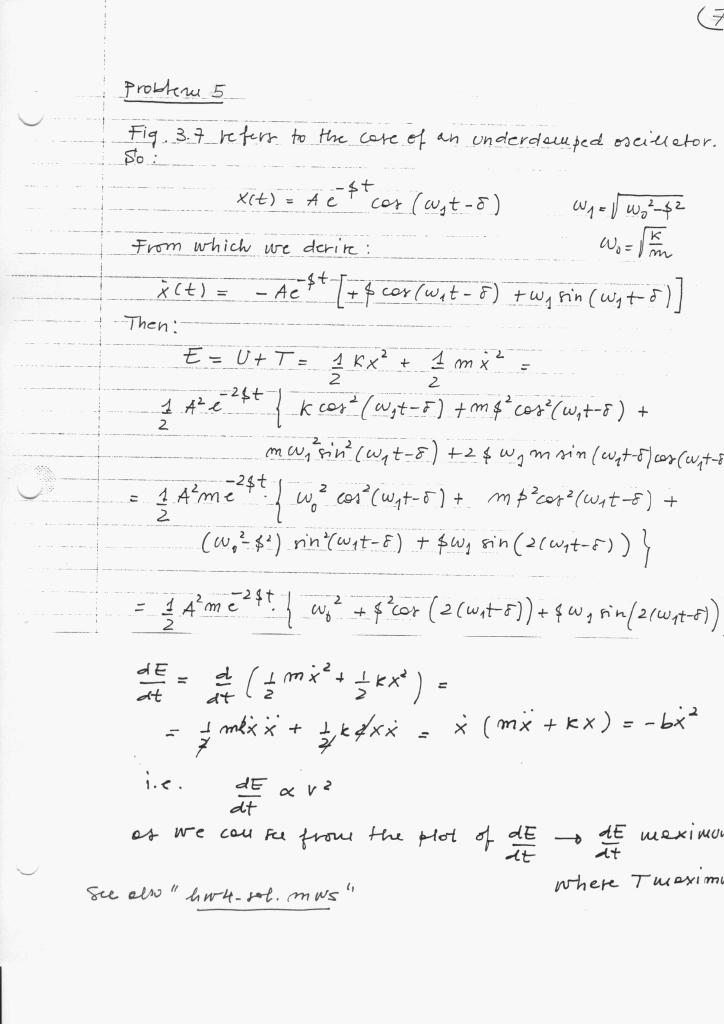 (7
Problem 5
Fig. 3.7 refers to the case of an underdamped oscillator.
So:
x(t) = A e^{-βt} cos (ω₁t - δ)    ω₁ = √(ω₀² - β²)
From which we derive:    ω₀ = √(k/m)
ẋ(t) = - A e^{-βt} [+β cos(ω₁t - δ) + ω₁ sin(ω₁t - δ)]
Then:
E = U + T = 1/2 kx² + 1/2 m ẋ² =
1/2 A² e^{-2βt} { k cos²(ω₁t-δ) + mβ² cos²(ω₁t-δ) +
mω₁² sin²(ω₁t-δ) + 2 β ω₁ m sin(ω₁t-δ) cos(ω₁t-δ
= 1/2 A² m e^{-2βt} { ω₀² cos²(ω₁t-δ) + mβ² cos²(ω₁t-δ) +
(ω₀²-β²) sin²(ω₁t-δ) + βω₁ sin(2(ω₁t-δ)) }
= 1/2 A² m e^{-2βt} { ω₀² + β² cos(2(ω₁t-δ)) + βω₁ sin(2(ω₁t-δ))
dE/dt = d/dt (1/2 mẋ² + 1/2 kx²) =
= 1/2 m 2 ẋ ẍ + 1/2 k 2 x ẋ = ẋ (mẍ + kx) = -bẋ²
i.e. dE/dt ∝ v²
as we can see from the plot of dE/dt → dE/dt maximu
where T maxim
See also "hw4-sol.mws"